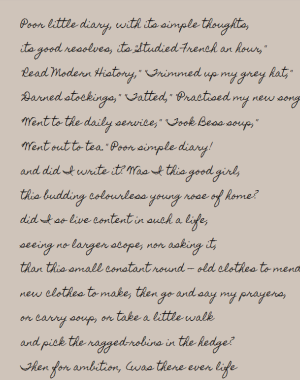 Poor little diary, with its simple thoughts,
its good resolves, its "Studied French an hour,"
"Read Modern History," "Trimmed up my grey hat,"
"Darned stockings," "Tatted," "Practised my new song
"Went to the daily service," "Took Bess soup,"
"Went out to tea." Poor simple diary!
and did I write it? Was I this good girl,
this budding colourless young rose of home?
did I so live content in such a life,
seeing no larger scope, nor asking it,
than this small constant round — old clothes to mend
new clothes to make, then go and say my prayers,
or carry soup, or take a little walk
and pick the ragged-robins in the hedge?
Then for ambition, (was there ever life